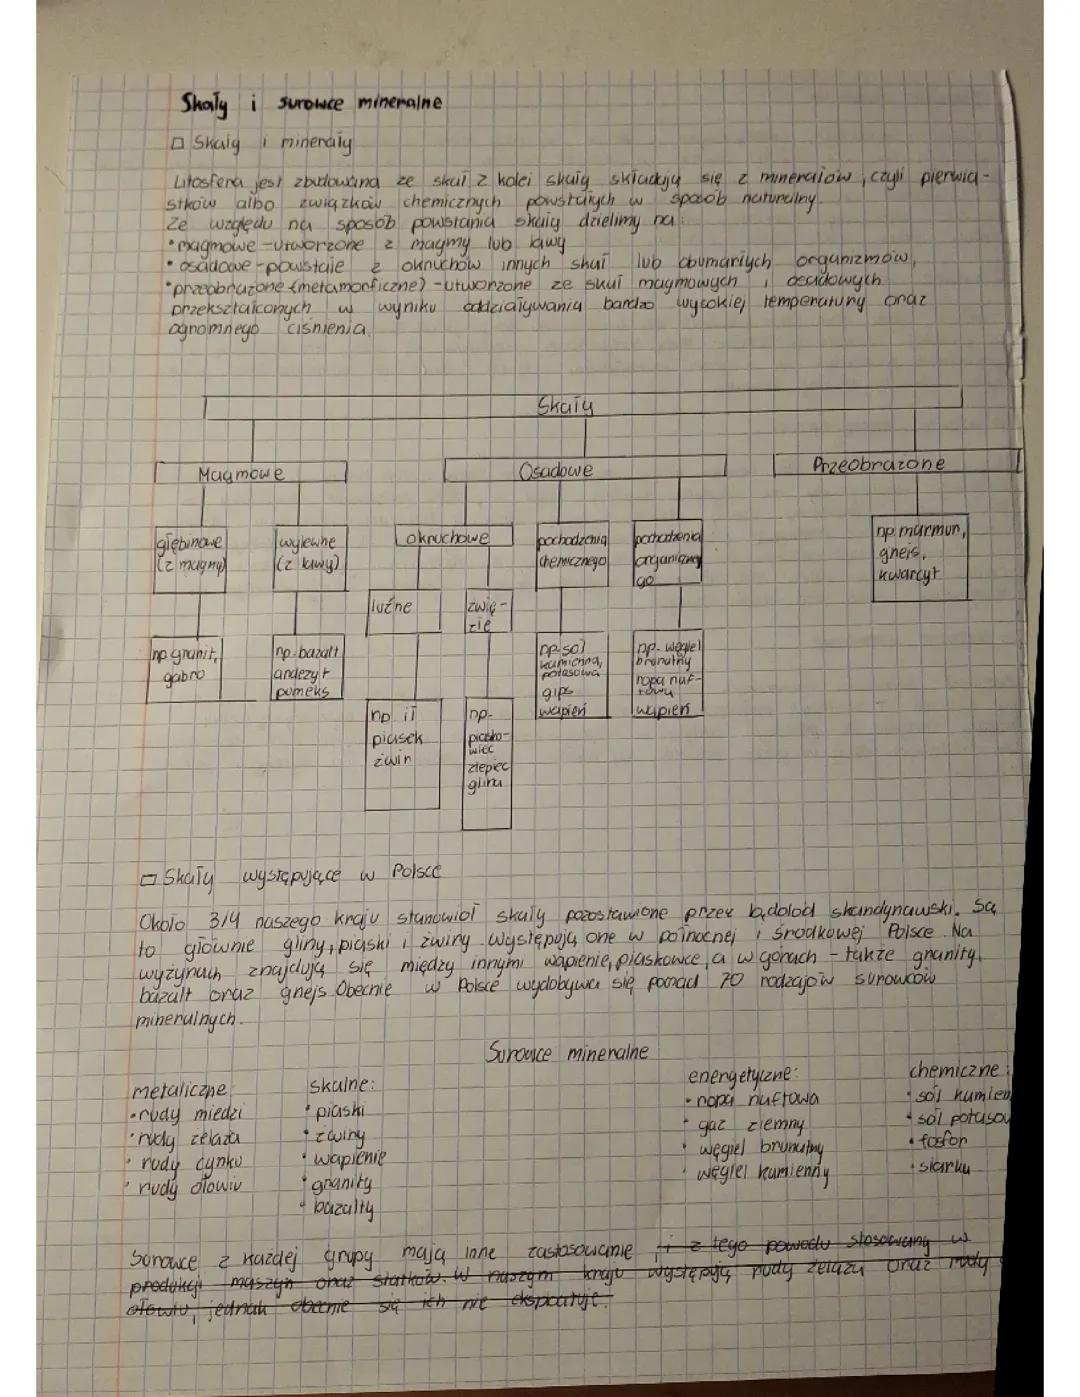 Skały i surowce mineralne
Skały i minerały
Litosfera jest zbudowana ze skał z kolei skały składają się z minerałów, czyli pierwia-
stków albo związków chemicznych powstałych w sposób naturalny.
Ze względu na sposób powstania skały dzielimy na:
• magmowe - utworzone z magmy lub lawy
• osadowe - powstaje z okruchów innych skał lub obumarłych organizmów,
• przeobrażone (metamorficzne) - utworzone ze skał magmowych i osadowych
przekształconych w wyniku oddziaływania bardzo wysokiej temperatury oraz
ogromnego ciśnienia.
Skały
Magmowe Osadowe Przeobrażone
głębinowe
(z magmy)
wylewne
(z lawy)
okruchowe
pochodzenia
chemicznego
pochodzenia
organiczne
go
np. marmur,
gnejs,
kwarcyt
luźne
zwię-
złe
np. granit,
gabro
np. bazalt
andezyt
pomeks
np. sól
kamienna,
potasowa
gips
wapień
np. węgiel
brunatny
ropa naf-
towa
wapień
np. ił
piasek
żwir
np.
piasko-
wiec
zlepiec
glina
Skały występujące w Polsce
Około 3/4 naszego kraju stanowiół skały pozostawione przez lądolód skandynawski. Są
to głównie gliny, piaski i żwiry. Występują one w północnej i środkowej Polsce. Na
wyżynach znajdują się między innymi wapienie, piaskowce, a w górach - także granity,
bazalt oraz gnejs. Obecnie w Polsce wydobywa się ponad 70 rodzajów surowców
mineralnych.
Surowce mineralne
metaliczne:
• rudy miedzi
• rudy żelaza
• rudy cynku
• rudy ołowiu
skalne:
• piaski
• żwiry
• wapienie
• granity
• bazalty
energetyczne:
• ropa naftowa
• gaz ziemny
• węgiel brunatny
• węgiel kamienny
chemiczne:
• sól kamien
• sól potasow
• fosfor
• siarka
Surowce z każdej grupy mają inne zastosowanie, i z tego powodu stosowany w
produkcji maszyn oraz statków. W naszym kraju występują rudy żelaza oraz rudy
ołowiu, jednak obecnie się ich nie eksploatuje.